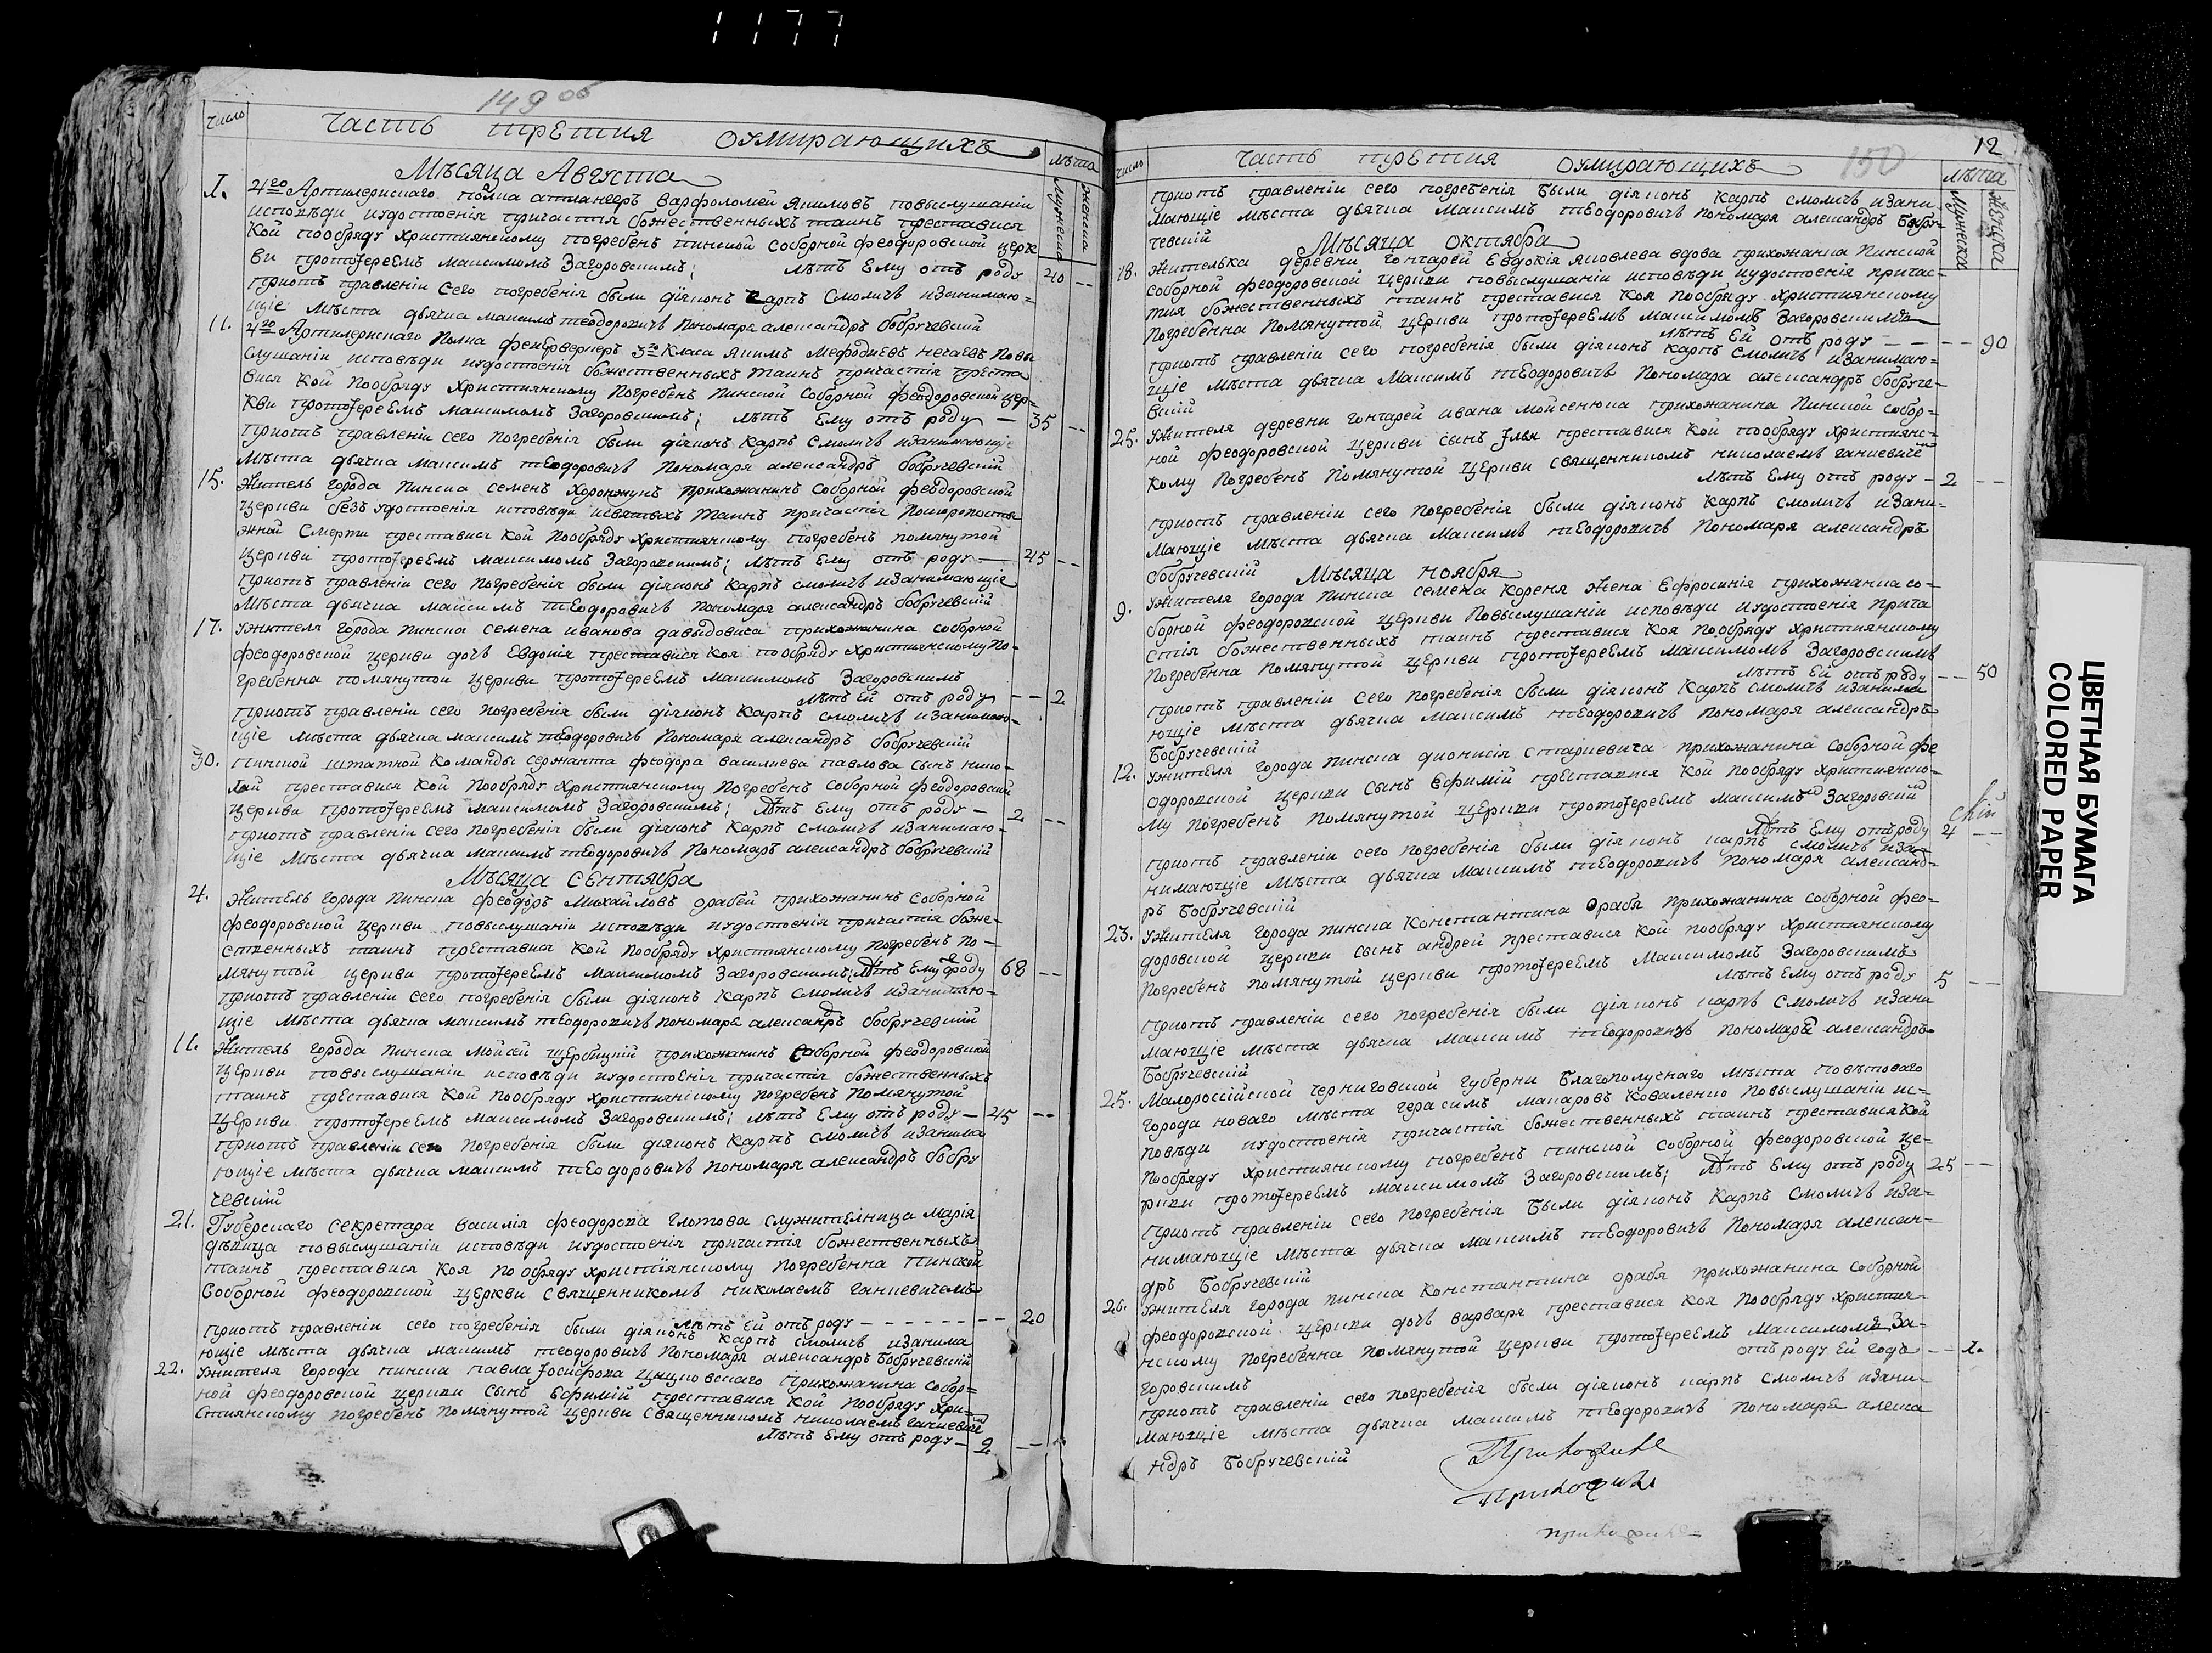 1177
149 об
Число
Часть третия оумирающихъ
лѣта
Мужеска
женска
Мѣсяца Августа
1. 4го Артилерискаго полка Варфоломей Якимовъ повыслушаніи
исповѣди иудостоенія причастія божественныхъ таинъ преставися
кой пообряду християнскому погребенъ пинской соборной феодоровской церк
ви протоіереемъ максимомъ Загоровскимъ; лѣтъ Ему отъ роду 40 --
приотъ правленіи сего погребенія были діяконъ карпъ Смоличъ изанимаю-
щіе мѣста дьячка максимъ теодоровичъ пономаря александръ бобручевскій
11. 4го Артилерискаго Полка феиерверкеръ 3го Класа якимъ Мефодиевъ нечаевъ Повы
слушаніи исповѣди иудостоенія божественныхъ таинъ причастія преста
вися кой пообряду християнскому погребенъ Пинской Соборной феодоровской цер-
кви протоіереемъ максимомъ Загоровскимъ; лѣтъ Ему отъ роду — 35 --
приотъ правленіи сего погребенія были діяконъ Карпъ Смоличъ изанимающіе
мѣста дьячка максимъ теодоровичъ пономаря александръ бобручевскій
15. Житель города пинска семенъ Хоронжукъ прихожанинъ Соборной феодоровской
церкви безъ удостоенія исповѣди исвятыхъ таинъ причастія Поскоропосты
жной Смерти преставися кой пообряду християнскому погребенъ помянутой
церкви протоіереемъ максимомъ Загоровскимъ; лѣтъ Ему отъ роду — 45 --
приотъ правленіи сего погребенія были діяконъ Карпъ смоличъ изанимающіе
мѣста дьячка максимъ теодоровичъ пономаря александръ бобручевскій
17. Ужителя города пинска семена иванова давыдовиса прихожанина соборной
феодоровской церкви дочъ Евдокия преставися коя пообряду християнскому по-
гребенна помянутой церкви протоіереемъ максимомъ Загоровскимъ
лѣтъ Ей отъ роду -- 2
приотъ правленіи сего погребенія были діяконъ карпъ смоличъ изанимаю-
щіе мѣста дьячка максимъ теодоровичъ пономаря александръ бобручевскій
30. пинской штатной команды сержанта феодора василиева павлова сынъ нико-
лай преставися кой пообряду християнскому погребенъ соборной феодоровской
церкви протоіереемъ максимомъ Загоровскимъ; лѣтъ Ему отъ роду — 2 --
приотъ правленіи сего погребенія были діяконъ карпъ смоличъ изанимаю-
щіе мѣста дьячка максимъ теодоровичъ пономаръ александръ бобручевскій
Мѣсяца Сентября
4. Житель города пинска феодоръ Михайловъ орабей прихожанинъ соборной
феодоровской церкви повыслушаніи исповѣди иудостоенія причастія боже-
ственныхъ таинъ преставися кой пообряду християнскому погребенъ по-
мянутой церкви протоіереемъ максимомъ Загоровскимъ; лѣтъ Ему роду 68 --
приотъ правленіи сего погребенія были діяконъ карпъ смоличъ изанимаю-
щіе мѣста дьячка максимъ теодоровичъ пономаря александръ бобручевскій
11. Житель города пинска мойсей щербицкій прихожанинъ соборной феодоровской
церкви повыслушаніи исповѣди иудостоенія причастія божественныхъ
таинъ преставися кой пообряду християнскому погребенъ помянутой
церкви протоіереемъ максимомъ Загоровскимъ; лѣтъ Ему отъ роду — 45 --
приотъ правленіи сего погребенія были діяконъ карпъ смоличъ изанима
ющіе мѣста дьячка максимъ теодоровичъ пономаря александръ бобру
чевскій
21. Губерскаго секретара василія феодорова глотова служителница марія
дѣвица повыслушаніи исповѣди иудостоенія причастія божественныхъ
таинъ преставися коя пообряду християнскому погребенна пинской
Соборной феодоровской церкви священникомъ николаемъ ганкевичемъ
лѣтъ Ей отъ роду - - - - - - - - 20
приотъ правленіи сего погребенія были діяконъ карпъ смоличъ изанима
ющіе мѣста дьячка максимъ теодоровичъ пономаря александръ бобручевскій
22. Ужителя города пинска павла Іосифова прихожанина собор-
ной феодоровской церкви сынъ Ефимій преставися кой пообряду хри-
стиянскому погребенъ помянутой церкви священникомъ николаемъ ганкевичемъ
лѣтъ Ему отъ роду — 2 --
12
150
Число
Часть третия оумирающихъ
лѣта
Мужеска
женска
приотъ правленіи сего погребенія были діяконъ карпъ смоличъ изани-
мающіе мѣста дьячка максимъ теодоровичъ пономаря александръ бобру-
чевскій
Мѣсяца октября
18. жителька деревни гончарей Евдокія яковлева вдова прихожанка пинской
соборной феодоровской церкви повыслушаніи исповѣди иудостоенія причас-
тия божественныхъ таинъ преставися коя пообряду християнскому
погребенна помянутой церкви протоіереемъ максимомъ Загоровскимъ
лѣтъ Ей отъ роду — — — 90
приотъ правленіи сего погребенія были діяконъ карпъ смоличъ изанимаю-
щіе мѣста дьячка Максимъ теодоровичъ пономара александръ бобруче-
вскій
25. Ужителя деревни гончарей ивана мойсенюка прихожанина пинской собор-
ной феодоровской церкви сынъ Ілья преставися кой пообряду християнс-
кому погребенъ помянутой церкви священникомъ николаемъ ганкевиче
лѣтъ Ему отъ роду — 2 --
приотъ правленіи сего погребенія были діяконъ карпъ смоличъ изани-
мающіе мѣста дьячка максимъ теодоровичъ пономаря александръ
бобручевскій
Мѣсяца ноября
9. Ужителя города пинска семена кореня жена Ефросинія прихожанка со-
борной феодоровской церкви повыслушаніи исповѣди иудостоенія прича
стія божественныхъ таинъ преставися коя пообряду християнскому
погребенна помянутой церкви протоіереемъ максимомъ Загоровскимъ
лѣтъ Ей отъ роду -- 50
приотъ правленіи сего погребенія были діяконъ карпъ смоличъ изанима
ющіе мѣста дьячка максимъ теодоровичъ пономаря александръ
Бобручевскій
12. Ужителя города пинска дионисія стаpкевича прихожанина соборной фе
одоровской церкви сынъ Ефимій преставися кой пообряду християнско-
му погребенъ помянутой церкви протоіереемъ максимъ Загоровский
лѣтъ Ему отъ роду 4 --
приотъ правленіи сего погребенія были діяконъ карпъ смоличъ иза
нимающіе мѣста дьячка максимъ теодоровичъ пономаря александ-
ръ бобручевскій
23. Ужителя города пинска константина орабя прихожанина соборной фео-
доровской церкви сынъ андрей преставися кой пообряду християнскому
погребенъ помянутой церкви протоіереемъ максимомъ Загоровскимъ
лѣтъ Ему отъ роду 5 --
приотъ правленіи сего погребенія были діяконъ карпъ смоличъ изани
мающіе мѣста дьячка максимъ теодоровичъ пономаря александръ
Бобручевскій
25. Малороссійской черниговской губерни благополучнаго мѣста повѣтоваго
города новаго мѣста герасимъ макаровъ коваленко повыслушаніи ис-
повѣди иудостоенія причастія божественныхъ таинъ преставися кой
пообряду християнскому погребенъ пинской соборной феодоровской це-
ркви протоіереемъ максимомъ Загоровскимъ; лѣтъ Ему отъ роду 25 --
приотъ правленіи сего погребенія были діяконъ карпъ смоличъ иза-
нимающіе мѣста дьячка максимъ теодоровичъ пономаря алексан-
дръ Бобручевскій
26. Ужителя города пинска константина орабя прихожанина соборной
феодоровской церкви дочъ варвара преставися коя пообряду христия-
нскому погребенна помянутой церкви протоіереемъ максимомъ За-
горовскимъ отъ роду Ей годъ -- 1.
приотъ правленіи сего погребенія были діяконъ карпъ смоличъ изани-
мающіе мѣста дьячка максимъ теодоровичъ пономаря алекса
ндръ Бобручевскій
ЦВЕТНАЯ БУМАГА
COLORED PAPER